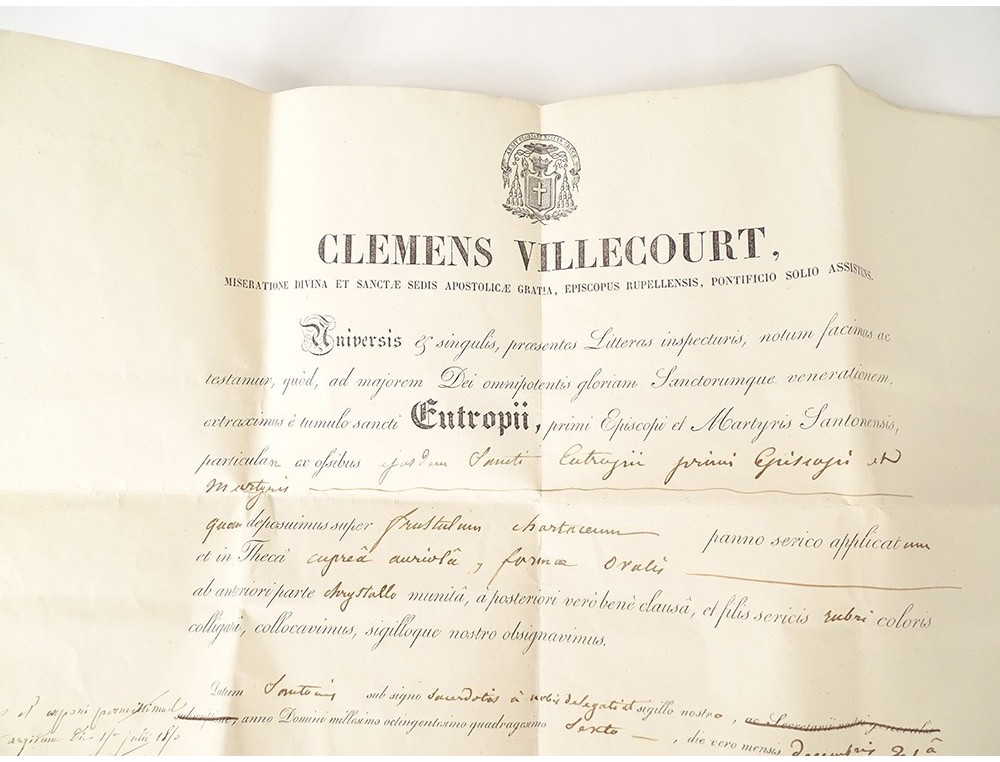 CLEMENS VILLECOURT,
MISERATIONE DIVINA ET SANCTÆ SEDIS APOSTOLICÆ GRATIA, EPISCOPUS RUPELLENSIS, PONTIFICIO SOLIO ASSISTENS.
Universis & singulis, præsentes Litteras inspecturis, notum facimus ac
testamur, quòd, ad majorem Dei omnipotentis gloriam Sanctorumque venerationem,
extraximus è tumulo sancti Eutropii, primi Episcopi et Martyris Santonensis,
particulam ex ossibus ejusdem Sancti Eutropii primi Episcopi et
Martyris
quam deposuimus super frustulum chartaceum panno serico applicatum
et in Thecâ cupreâ auriolâ, formæ ovalis
ab anteriori parte chrystallo munitâ, a posteriori verò benè clausâ, et filis sericis rubri coloris
colligari, collocavimus, sigilloque nostro obsignavimus.
Datum Santonis sub signo sacerdotis à nobis delegati et sigillo nostro, ac Secretarii nostri generalis
anno Domini millesimo octingentesimo quadragesimo sexto, die vero mensis decembris 21â
et exponi permittimus
die 1â julii 18